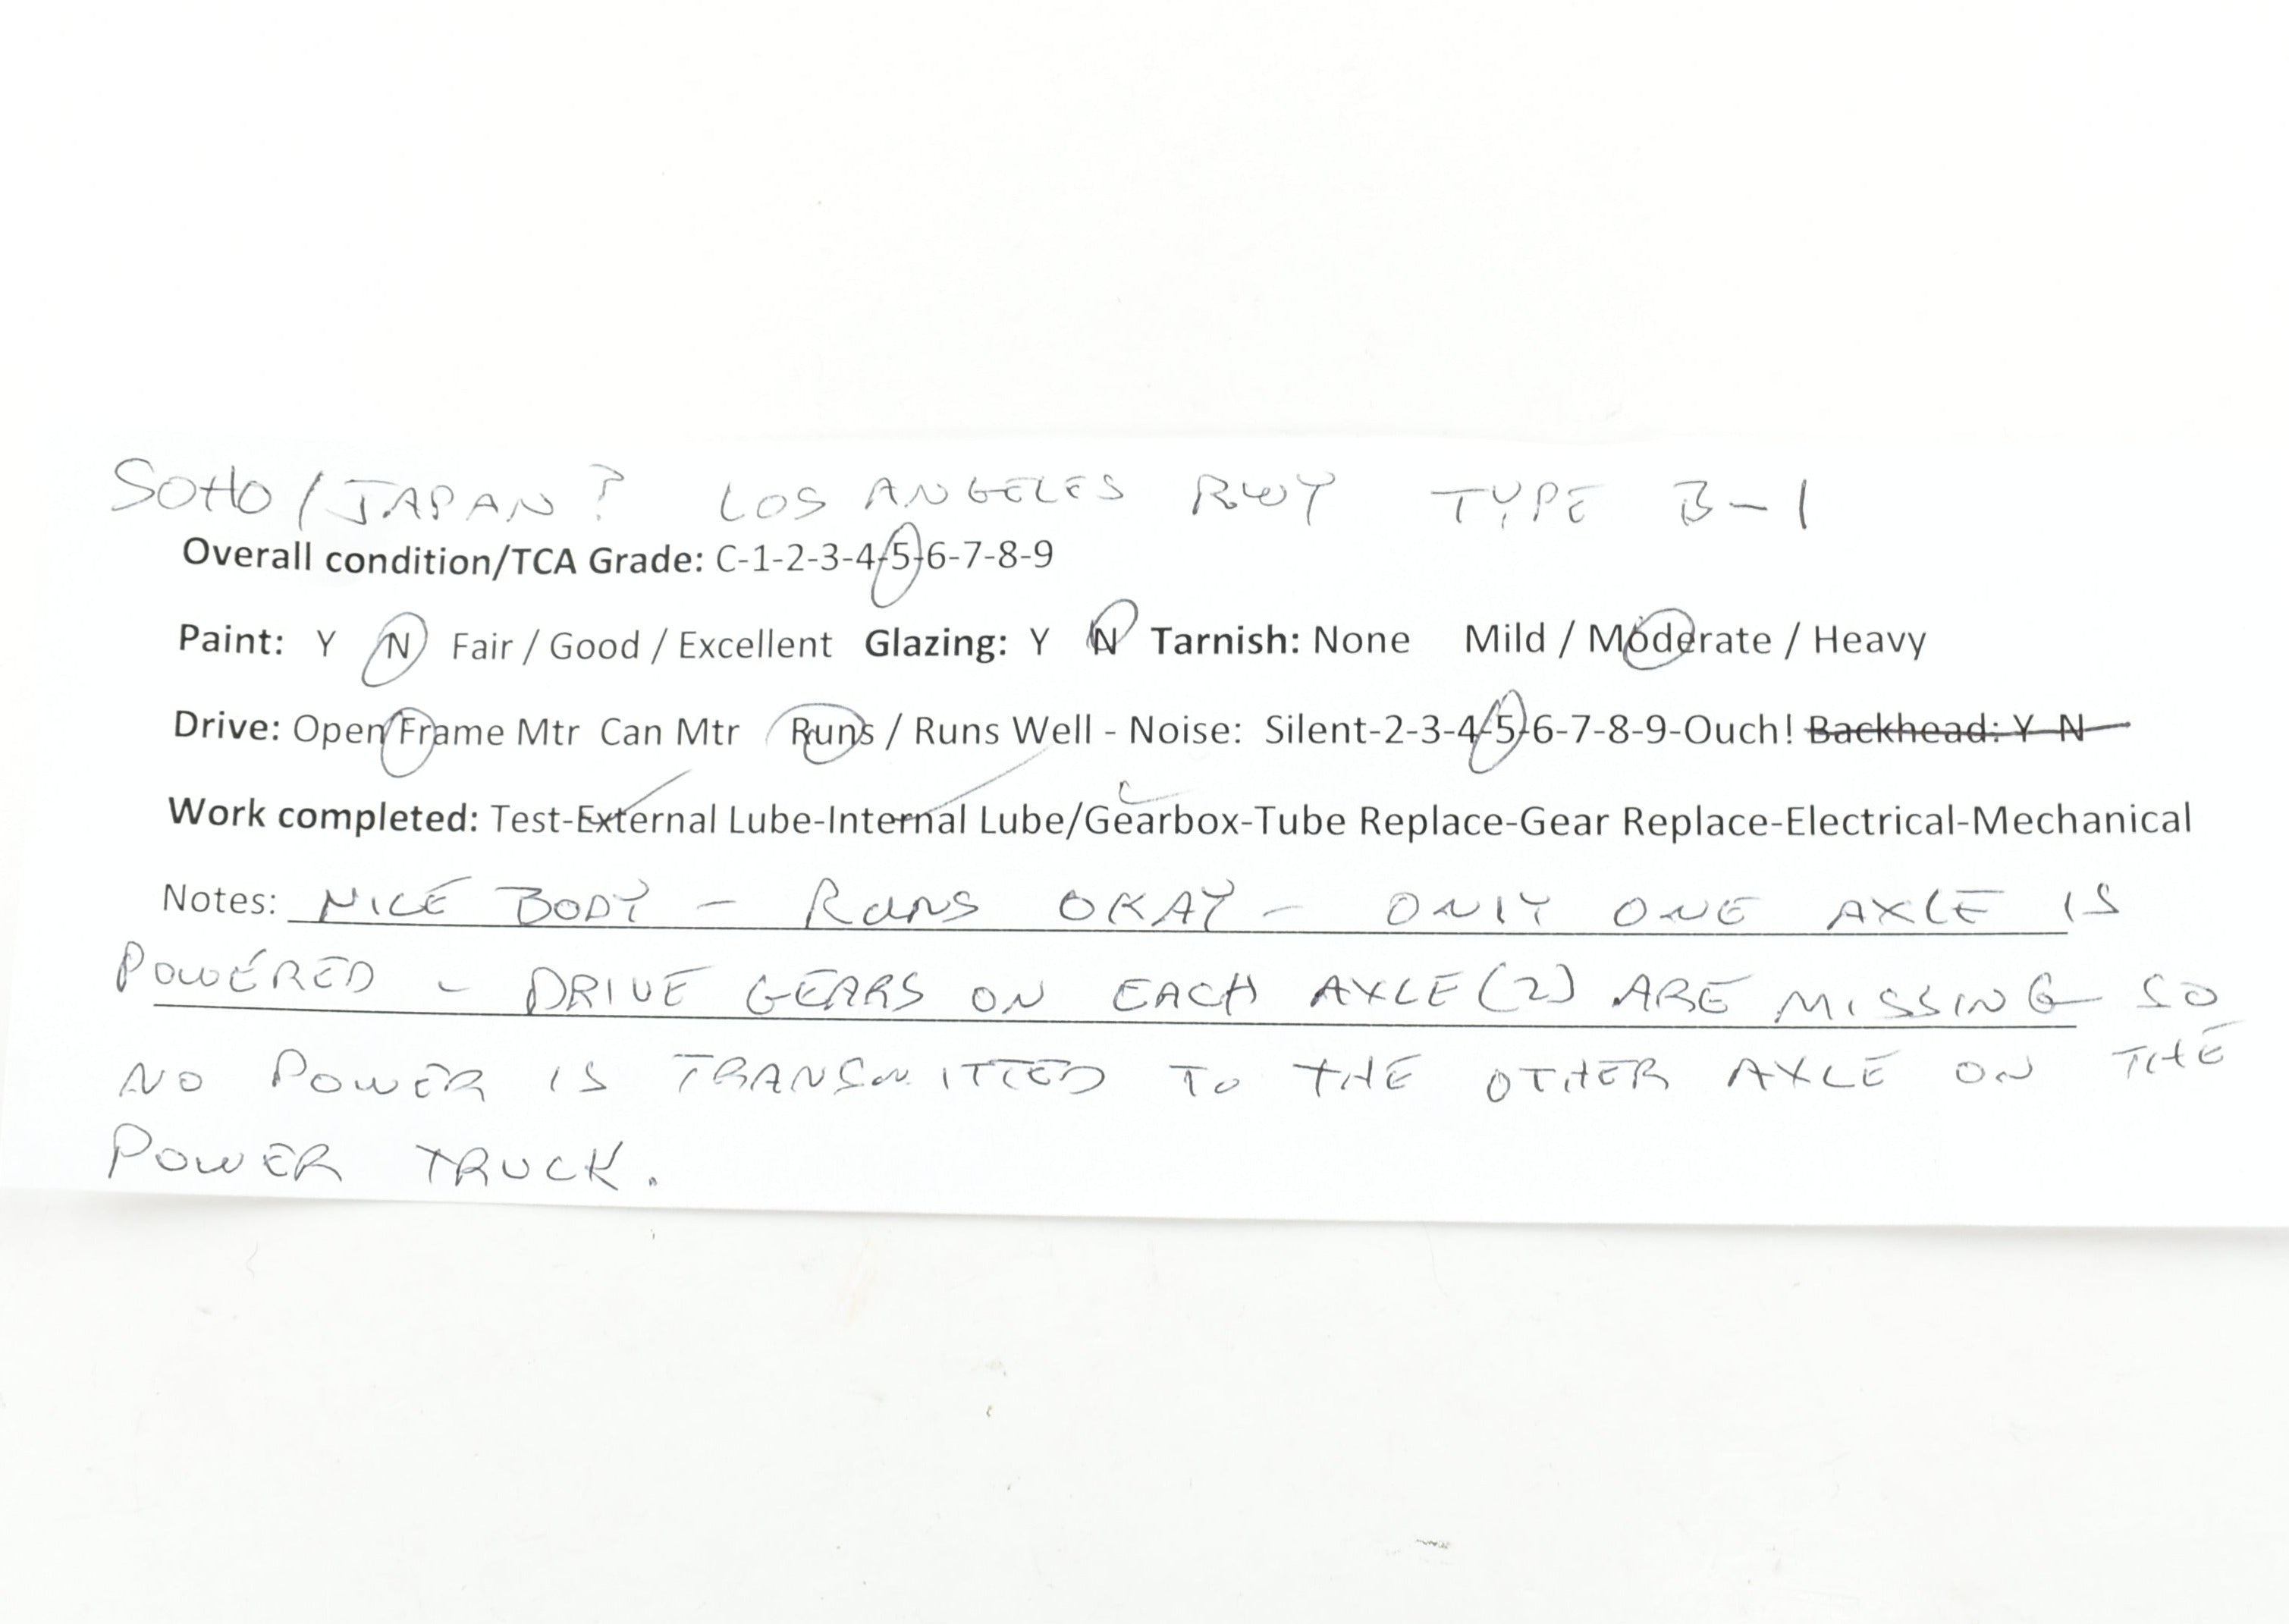 SOHO/JAPAN? LOS ANGELES RWY TYPE B-1
Overall condition/TCA Grade: C-1-2-3-4-5-6-7-8-9
Paint: Y N Fair / Good / Excellent Glazing: Y N Tarnish: None Mild / Moderate / Heavy
Drive: Open Frame Mtr Can Mtr Runs / Runs Well - Noise: Silent-2-3-4-5-6-7-8-9-Ouch! Backhead: Y N
Work completed: Test-External Lube-Internal Lube/Gearbox-Tube Replace-Gear Replace-Electrical-Mechanical
Notes: NICE BODY - RUNS OKAY - ONLY ONE AXLE IS
POWERED - DRIVE GEARS ON EACH AXLE (2) ARE MISSING SO
NO POWER IS TRANSMITTED TO THE OTHER AXLE ON THE
POWER TRUCK.